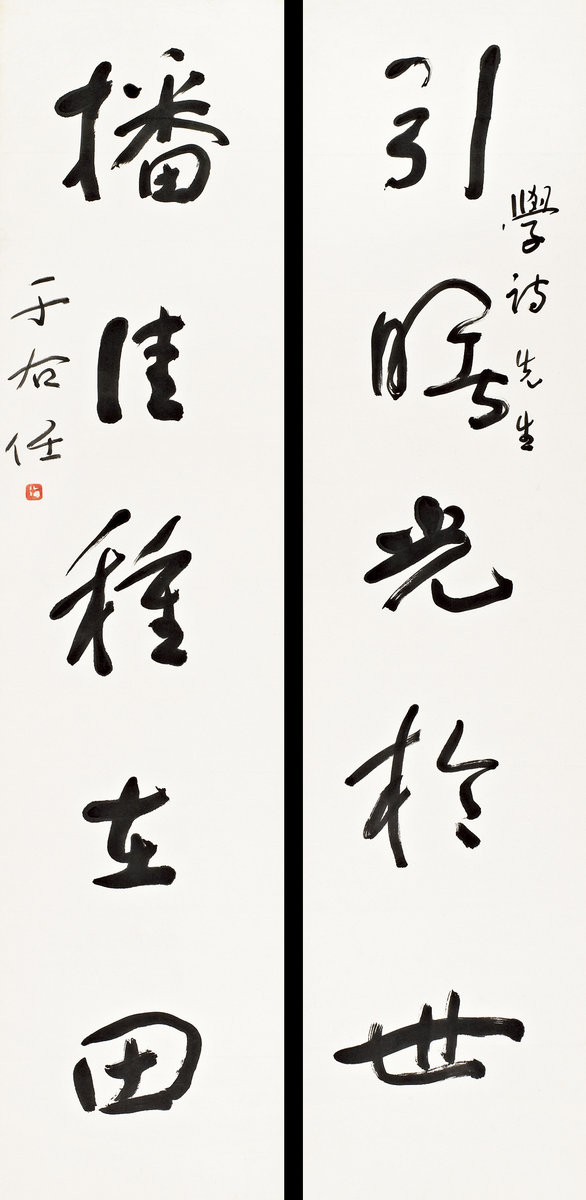 學詩先生
引曙光於世
播佳種在田
于右任